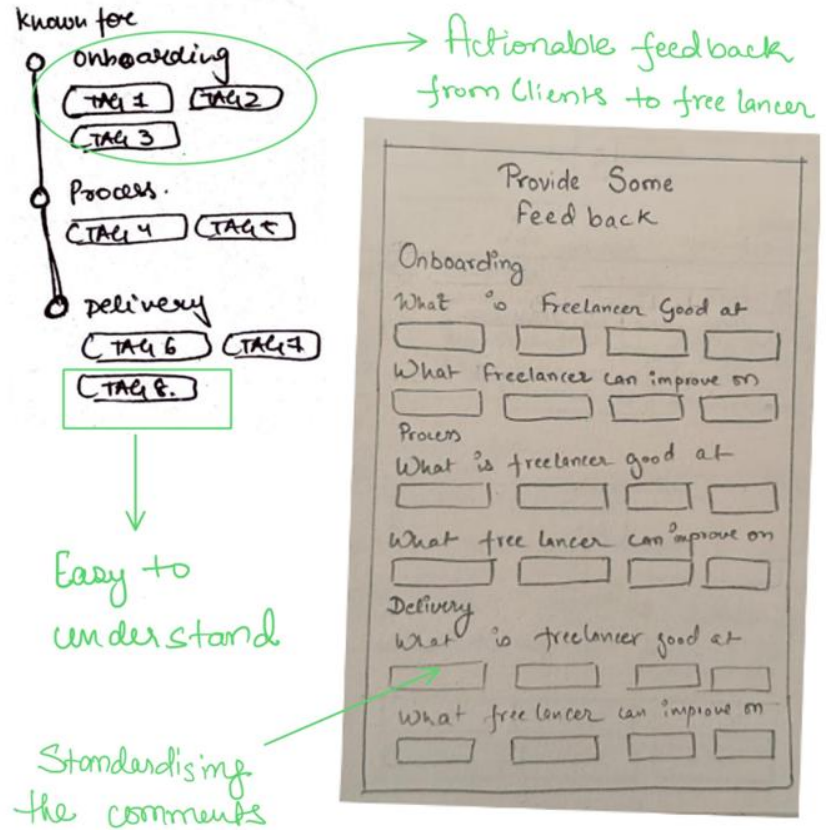 Known for
Onboarding
TAG 1 TAG 2
TAG 3
Process.
TAG 4 TAG 5
Delivery
TAG 6 TAG 7
TAG 8.
Actionable feedback
from Clients to free lancer
Easy to
understand
Standardising
the comments
Provide Some
Feed back
Onboarding
What is Freelancer Good at
What Freelancer can improve on
Process
What is freelancer good at
What free lancer can improve on
Delivery
What is freelancer good at
What free lancer can improve on